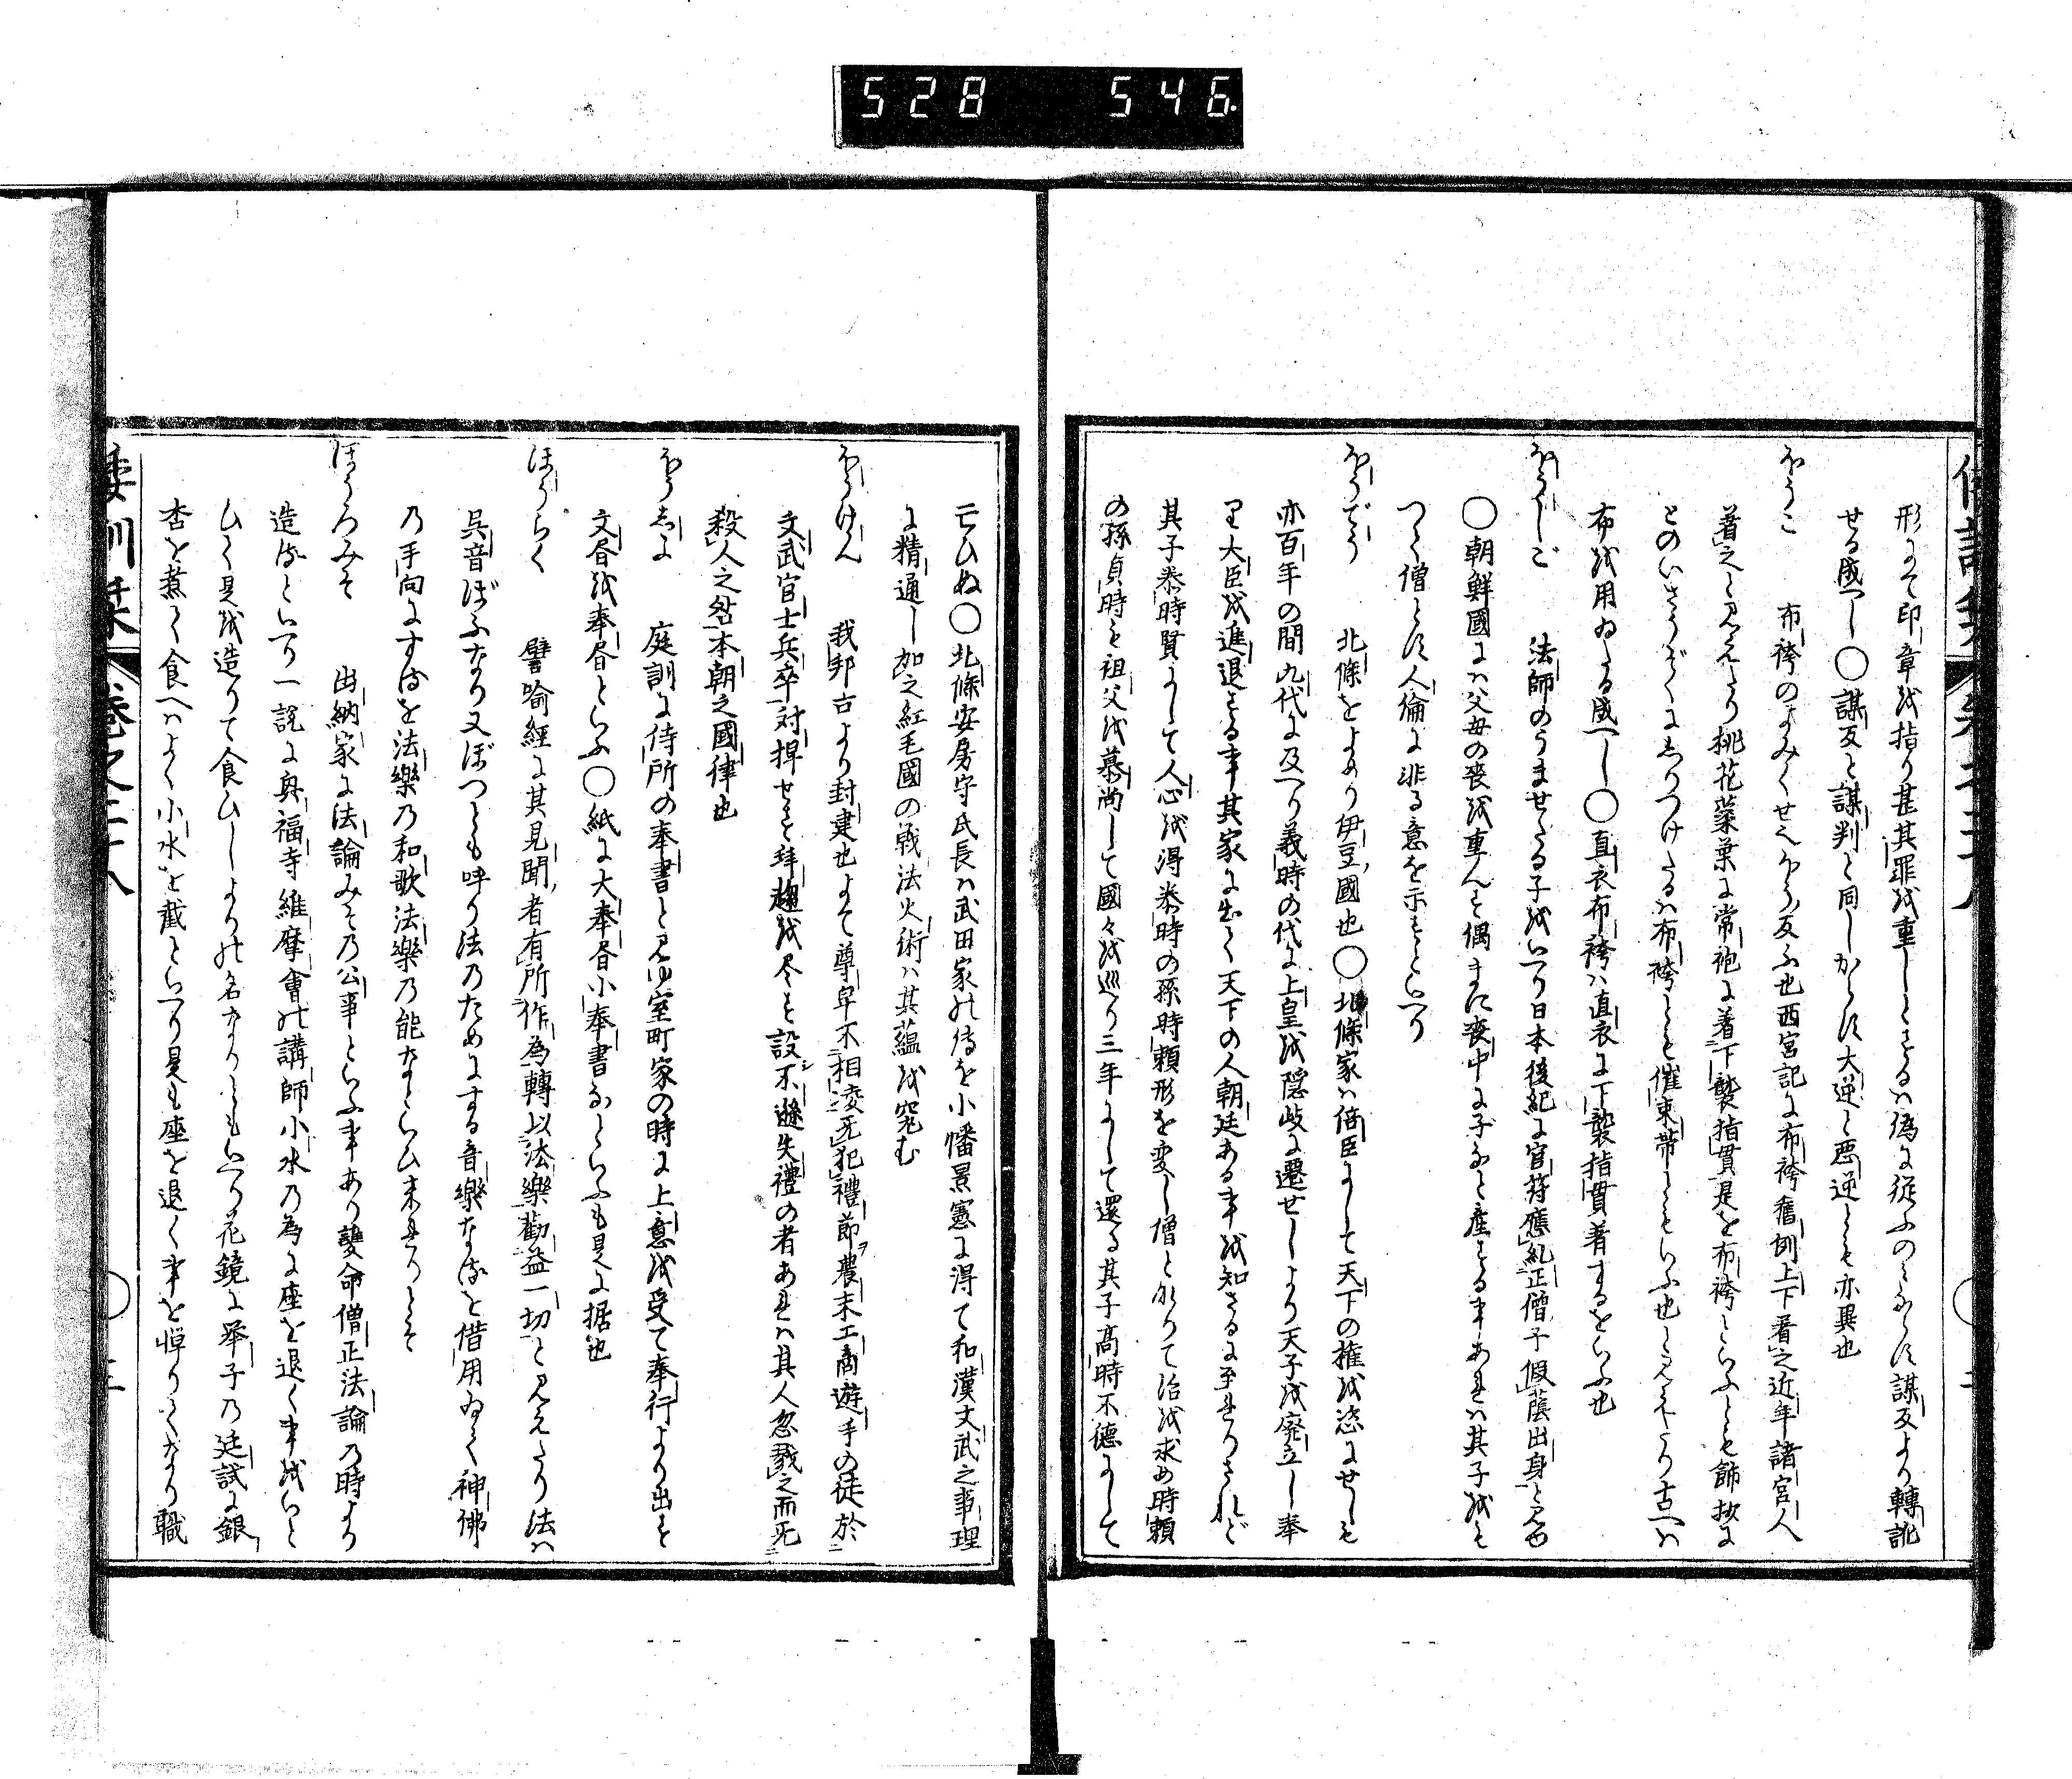 528 546
形にて印章を指り甚其罪を重しとするは偽に従ふのみならす謀反より轉訛
せる成へし○謀反と謀判と同しからす大逆と悪逆とも亦異也
ほうこ 布袴のよみくせへ反ふ也西宮記に布袴舊例上下着之近年諸宮人
着之と見えたり桃花蘂葉に常袍に着下襲指貫是を布袴といふとも餝抄に
とのいさうそくにしりつけたるは布袴とも催束帯ともいふ也と見えたり古へは
布を用ゐたる成へし○直衣布袴は直衣に下襲指貫着するをいふ也
ほうしご 法師のうませたる子をいへり日本後紀に官符應糺正僧子假蔭出身と見ゆ
○朝鮮國には父母の喪を重んす偶まに喪中に子など産する事あれは其子をも
つて僧とす人倫に非る意を示すといへり
ほうでう 北條をよめり伊豆國也○北條家は倍臣にして天下の権を恣にせしも
亦百年の間九代に及へり義時の代に上皇を隠岐に遷せしより天子を廃立し奉
り大臣を進退する事其家に出て天下の人朝廷ある事を知さるに至れりされど
其子泰時賢にして人心を得泰時の孫時頼形を変し僧となりて治を求め時頼
の孫貞時も祖父を慕尚して國々を巡り三年にして還る其子高時不徳にして
亡ひぬ○北條安房守氏長は武田家の傳を小幡景憲に得て和漢文武之事理
に精通し加之紅毛國の戦法火術は其蘊を究む
ほうけん 我邦古より封建也よて尊卑不相凌死犯禮節農末工商遊手の徒於
文武官士兵卒對捍せす拜趨を尽す設不遜失禮の者あれは其人忽戮之而死
殺人之怨本朝之國律也
ほうしよ 庭訓に侍所の奉書と見ゆ室町家の時に上意を受て奉行より出す
文書を奉書といふ○紙に大奉書小奉書などいふも是に据也
ほうらく 譬喩經に其見聞者有所作為轉以法樂勸益一切と見えたり法は
呉音ぼふなり又ぼつとも呼り法のためにする音樂なるを借用ゐて神佛
の手向にするを法樂の和歌法樂の能なといひ来れりとそ
ほうろみそ 出納家に法論みその公事といふ事あり䕶命僧正法論の時より
造るといへり一説に興福寺維摩會の講師小水の為に座を退く事をいと
ひて是を造りて食ひしよりの名なりともいへり花鏡に舉子の廷試に銀
杏を煮て食へはよく小水を截といへり是も座を退く事を憚りてなり職
倭訓栞 巻之二十八 三